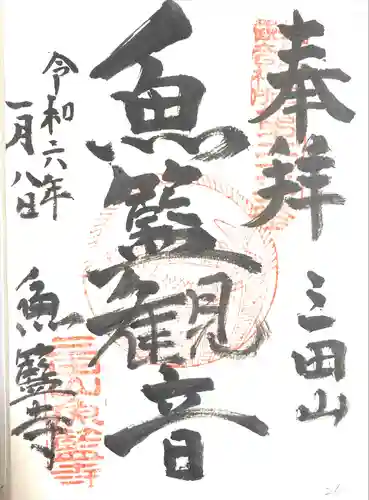 奉拝
三田山
魚籃観音
令和六年
一月八日
魚籃寺
三田山魚籃寺